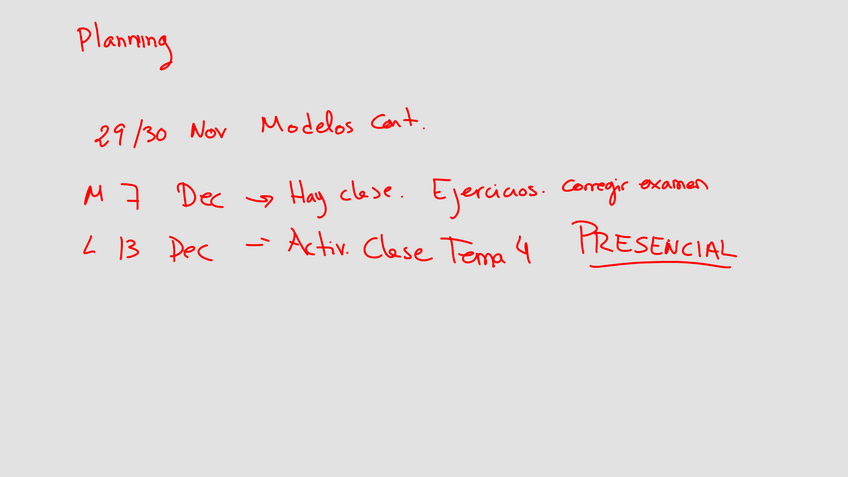 Planning
29/30 Nov Modelos Cont.
M 7 Dec → Hay clase. Ejercicios. corregir examen
L 13 Dec → Activ. Clase Tema 4 PRESENCIAL